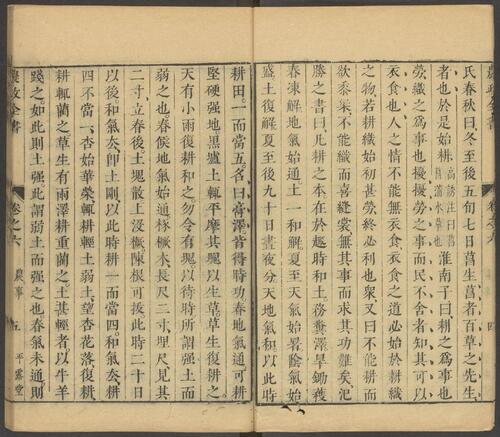 氏春秋曰冬至後五旬七日菖生菖者百草之先生
者也於是始耕高誘注曰菖菖蒲水草也淮南子曰耕之爲事也
勞織之爲事也擾擾勞之事而民不舍者知其可以
衣食也人之情不能無衣食衣食之道必始於耕織
之物若耕織始初甚勞終必利也衆又曰不能耕而
欲黍粱不能織而喜縫裳無其事而求其功難矣氾
勝之書曰凡耕之本在於趣時和土務糞澤旱鋤穫
春凍解地氣始通土一和解夏至天氣始暑陰氣始
盛土復解夏至後九十日晝夜分天地氣和以此時
耕田一而當五名曰膏澤皆得時功春地氣通可耕
堅硬强地黑壚土輒平摩其塊以生草草生復耕之
天有小雨復耕和之勿令有塊以待時所謂强土而
弱之也春候地氣始通椓橛木長尺二寸埋尺見其
二寸立春後土塊散上沒橛陳根可拔此時二十日
以後和氣去卽土剛以此時耕一而當四和氣去耕
四不當一杏始華榮輒耕輕土弱土望杏花落復耕
耕輒藺之草生有雨澤耕重藺之土甚輕者以牛羊
踐之如此則土强此謂弱土而强之也春氣未通則
農政全書 卷之六 農事 五 平露堂